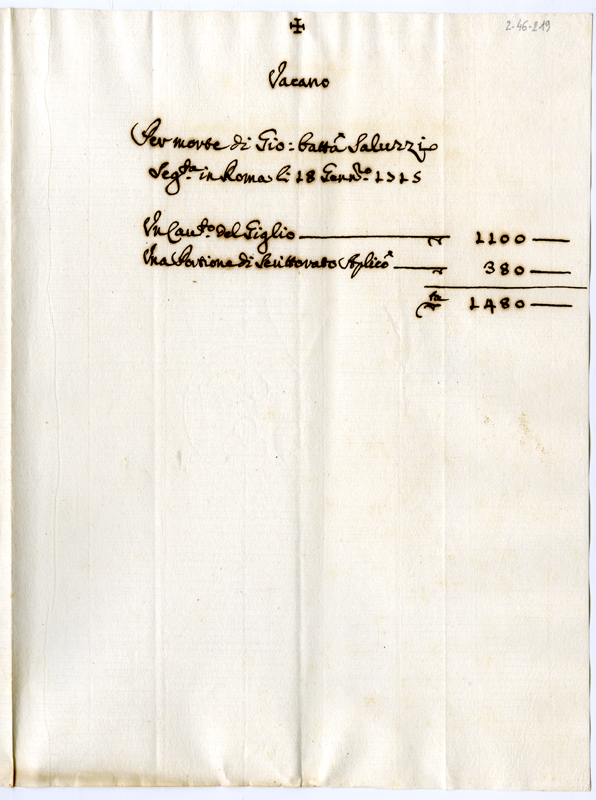 2-46-219
✠
Vacano
Per morte di Gio: Batta Saluzzi
Seg.ta in Roma li 18 Genn.o 1715
Un Cau.to del Giglio — 1100 —
Una Portione di Scrittorato Aplico — 380 —
1480 —